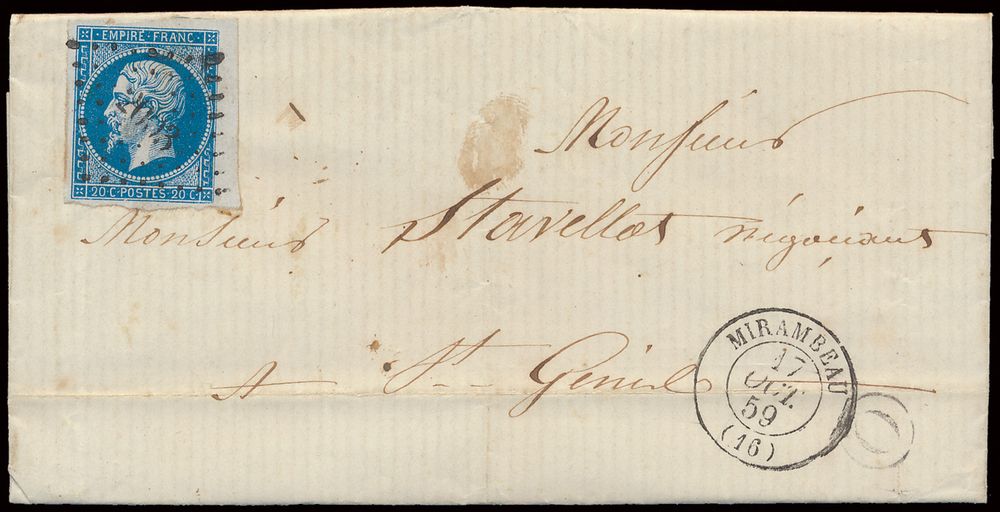 EMPIRE FRANC
20 C POSTES 20 C
Monsieur
Monsieur Stavellos négociant
A St Genis
MIRAMBEAU
17
OCT.
59
(16)
O